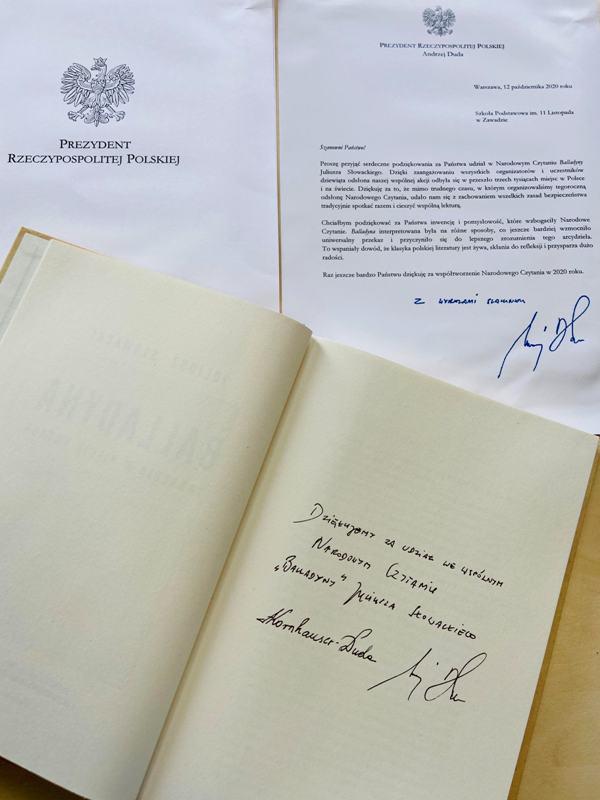 PREZYDENT
RZECZYPOSPOLITEJ POLSKIEJ
PREZYDENT RZECZYPOSPOLITEJ POLSKIEJ
Andrzej Duda
Warszawa, 12 października 2020 roku
Szkoła Podstawowa im. 11 Listopada
w Zawadzie
Szanowni Państwo!
Proszę przyjąć serdeczne podziękowania za Państwa udział w Narodowym Czytaniu Balladyny
Juliusza Słowackiego. Dzięki zaangażowaniu wszystkich organizatorów i uczestników
dziewiąta odsłona naszej wspólnej akcji odbyła się w przeszło trzech tysiącach miejsc w Polsce
i na świecie. Dziękuję za to, że mimo trudnego czasu, w którym organizowaliśmy tegoroczną
odsłonę Narodowego Czytania, udało nam się z zachowaniem wszelkich zasad bezpieczeństwa
tradycyjnie spotkać razem i cieszyć wspólną lekturą.
Chciałbym podziękować za Państwa inwencję i pomysłowość, które wzbogaciły Narodowe
Czytanie. Balladyna interpretowana była na różne sposoby, co jeszcze bardziej wzmocniło
uniwersalny przekaz i przyczyniło się do lepszego zrozumienia tego arcydzieła.
To wspaniały dowód, że klasyka polskiej literatury jest żywa, skłania do refleksji i przysparza dużo
radości.
Raz jeszcze bardzo Państwu dziękuję za współtworzenie Narodowego Czytania w 2020 roku.
Z WYRAZAMI SZACUNKU
BALLADYNA
DZIĘKUJEMY ZA UDZIAŁ WE WSPÓLNYM
NARODOWYM CZYTANIU
"BALLADYNY" JULIUSZA SŁOWACKIEGO
AKornhauser-Duda